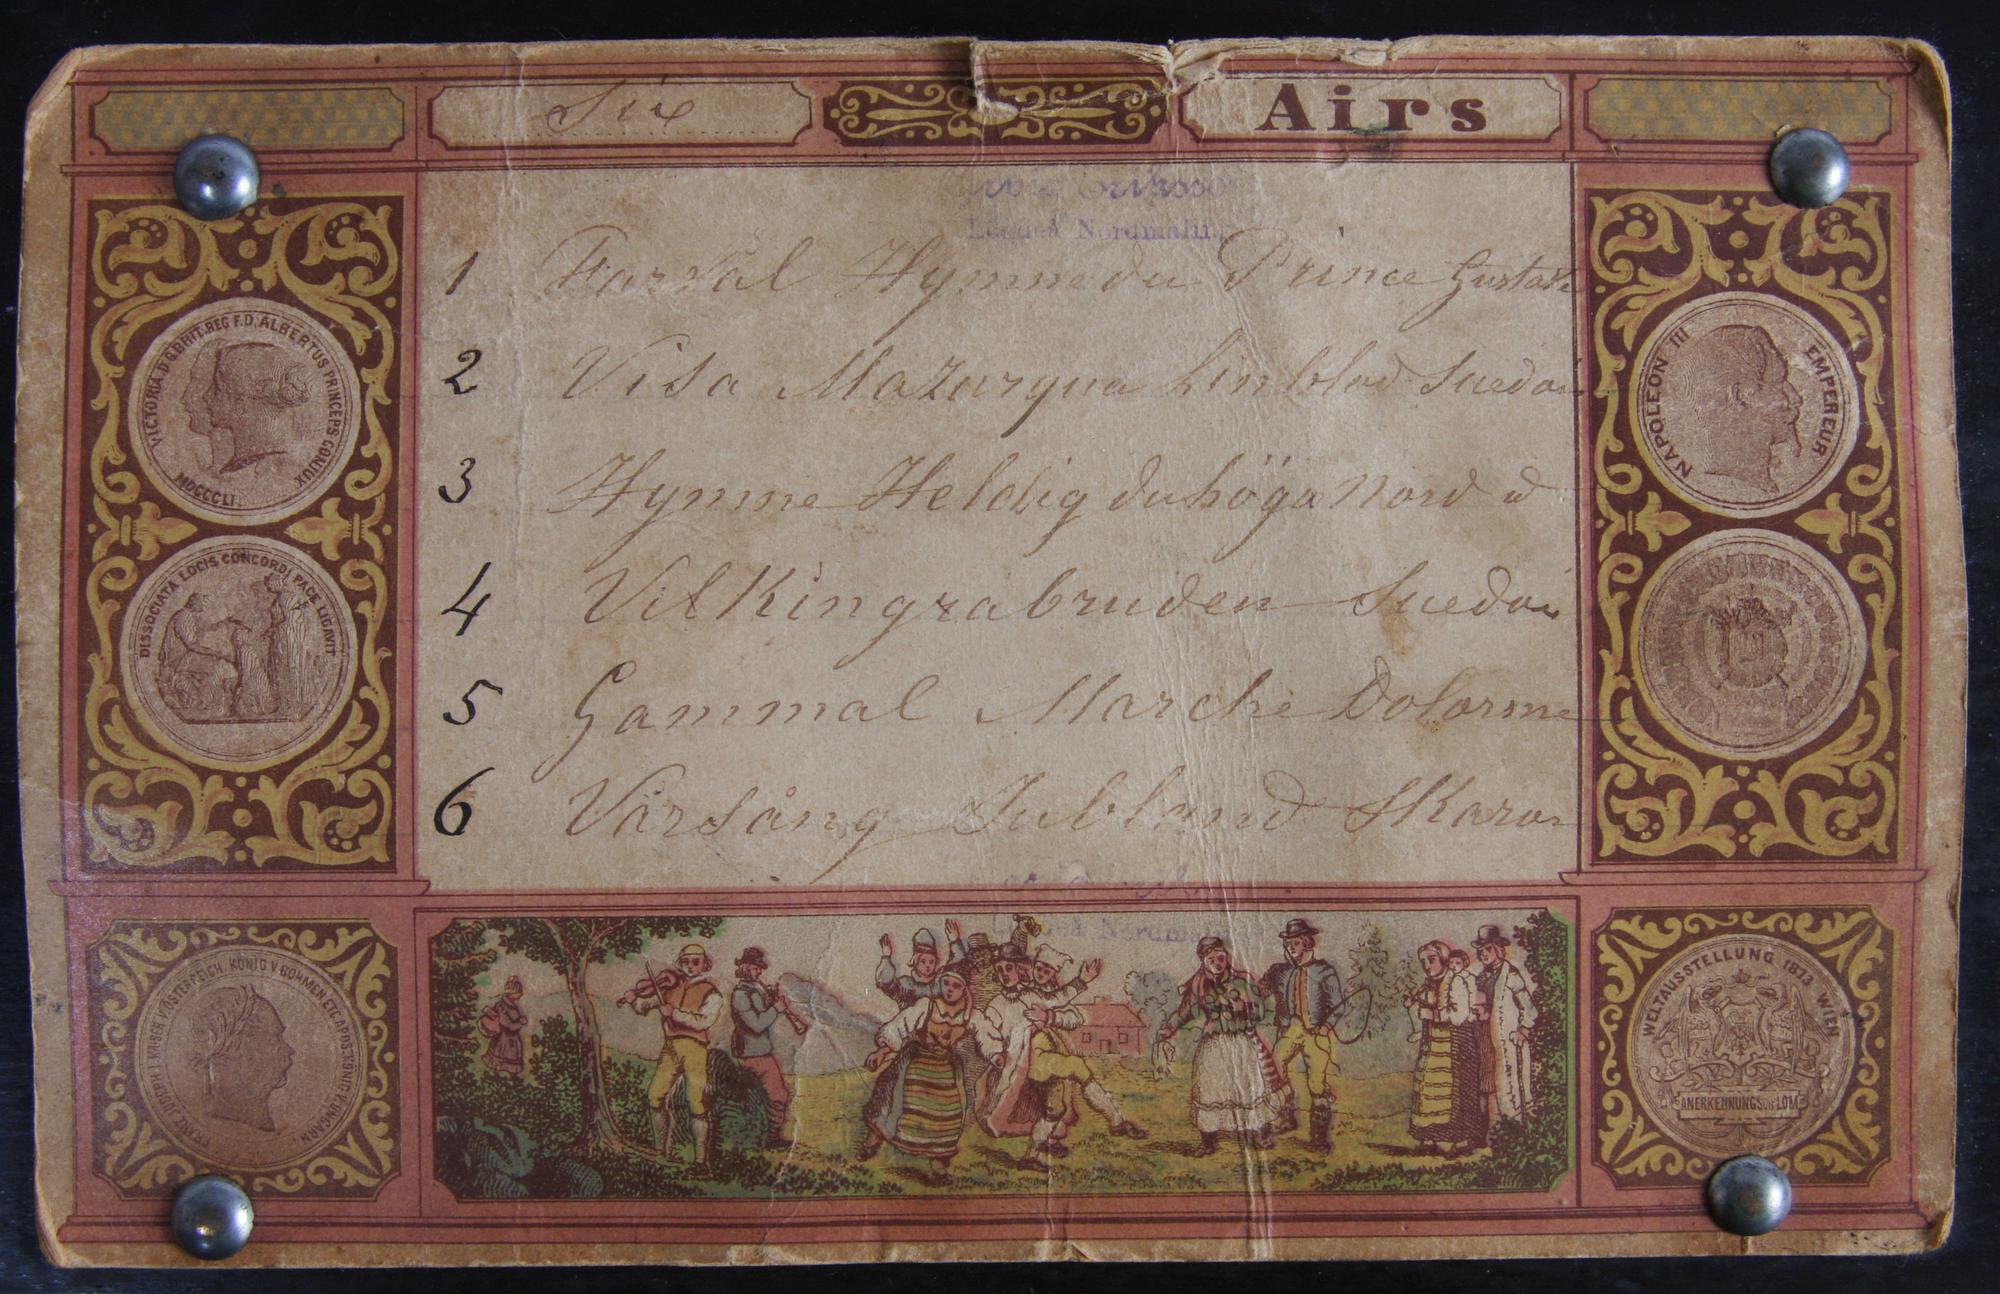 Six Airs
Lögdeå Nordmaling
1 Farväl Hymne du Prince Gustave
2 Visa Mazurqua Linblad Suedois
3 Hymne Heldig du höga Nord
4 Vilkingrabruden Suedois
5 Gammal Marche Dolorme
6 Vårsång Jubland Skaror
VICTORIA D:G:BRIT.REG F.D. ALBERTUS PRINCEPS CONJUX
MDCCCLI.
DISSOCIATA LOCIS CONCORDI PACE LIGAVIT
NAPOLEON III EMPEREUR
Nordmaling
FRANZ JOSEPH I KAISER V. ÖSTERREICH, KÖNIG V. BÖHMEN ETC. APOST. KÖNIG V. UNGARN
WELTAUSSTELLUNG 1873 WIEN
ANERKENNUNGS DIPLOM